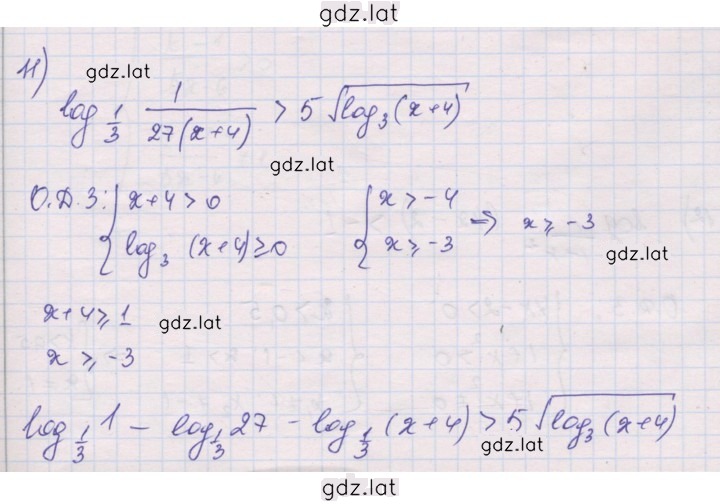 gdz.lat
11)
gdz.lat
log_{1/3} 1/(27(x+4)) > 5 √(log_3 (x+4))
gdz.lat
О.Д.З: { x+4 > 0 { x > -4 ⇒ x ⩾ -3
log_3 (x+4) ≥ 0 x ⩾ -3
gdz.lat
x+4 ⩾ 1
gdz.lat
x ⩾ -3
log_{1/3} 1 - log_{1/3} 27 - log_{1/3} (x+4) > 5 √(log_3 (x+4))
gdz.lat
gdz.lat